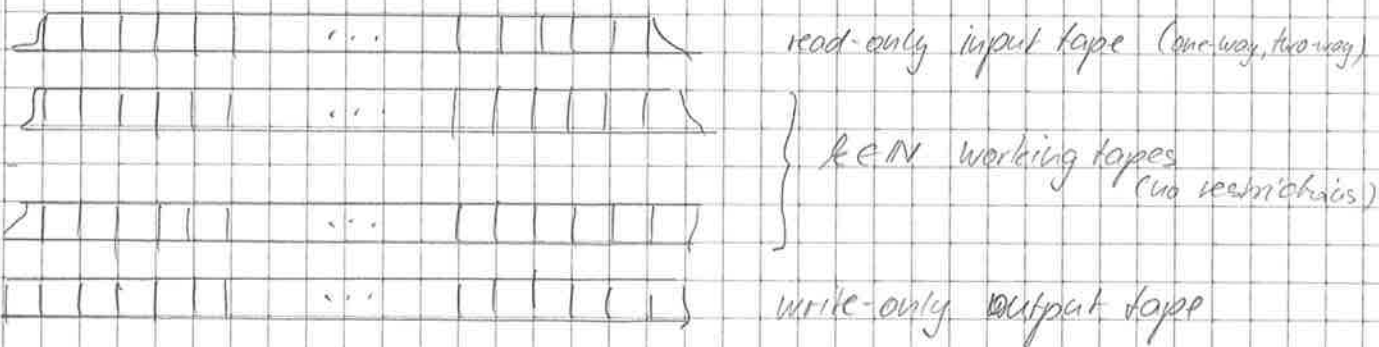 ... read-only input tape (one-way, two-way)
...
k∈ℕ working tapes
(no restrictions)
...
... write-only output tape